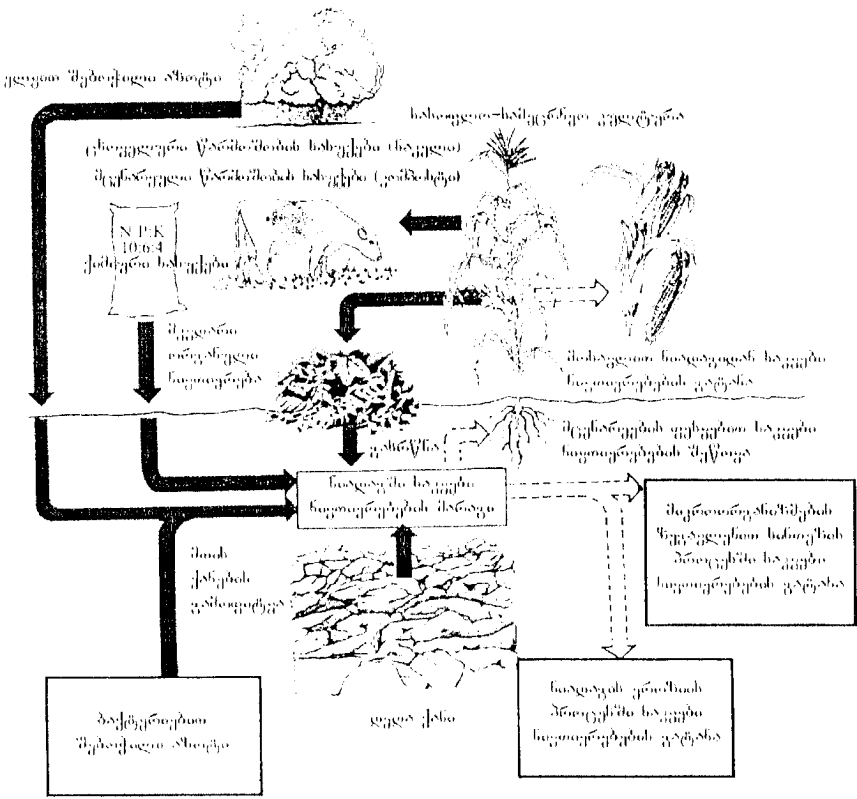 ელვით შებოჭილი აზოტი
სასოფლო-სამეურნეო კულტურა
ცხოველური წარმოშობის სასუქები (ნაკელი)
მცენარეული წარმოშობის სასუქები (კომპოსტი)
N P K
10:6:4
ქიმიური სასუქები
მკვდარი
ორგანული
ნივთიერება
მოსავლით ნიადაგიდან საკვები
ნივთიერებების გატანა
გახრწნა
მცენარეების ფესვებით საკვები
ნივთიერებების შეწოვა
ნიადაგში საკვები
ნივთიერებების მარაგი
მიკროორგანიზმების
ზეგავლენით სინთეზის
პროცესში საკვები
ნივთიერებების გატანა
მთის
ქანების
გამოფიტვა
ბაქტერიებით
შებოჭილი აზოტი
დედა ქანი
ნიადაგის ეროზიის
პროცესში საკვები
ნივთიერებების გატანა